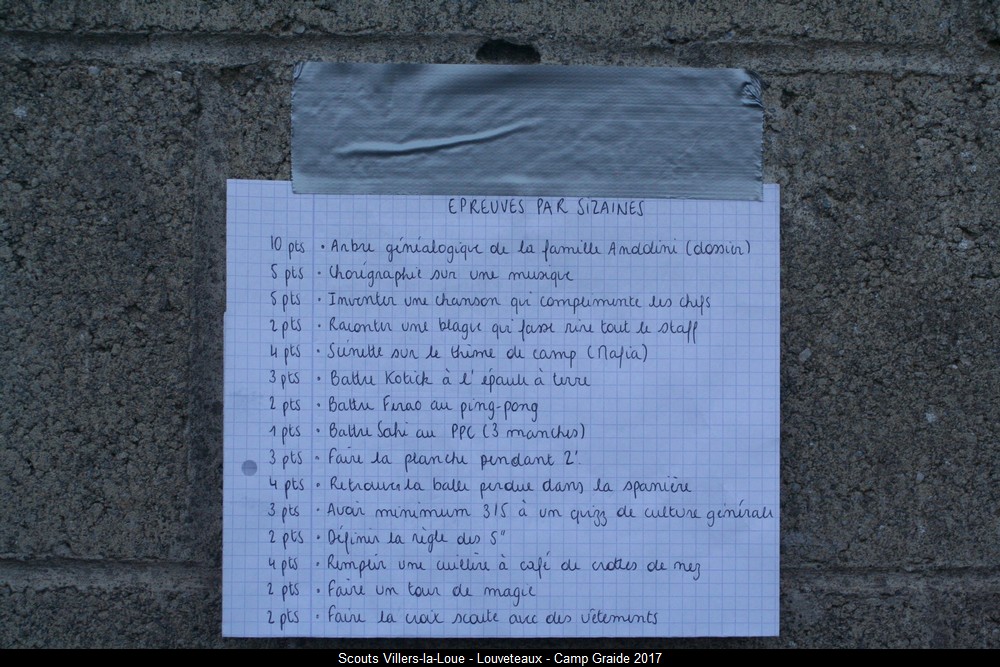 EPREUVES PAR SIZAINES
10 pts • Arbre généalogique de la famille Andolini (dossier)
5 pts • Chorégraphie sur une musique
5 pts • Inventer une chanson qui complimente les chefs
2 pts • Raconter une blague qui fasse rire tout le staff
4 pts • Scénette sur le thème de camp (Mafia)
3 pts • Battre Kotick à l'épaule à terre
2 pts • Battre Ferao au ping-pong
1 pts • Battre Sahi au PPC (3 manches)
3 pts • Faire la planche pendant 2'.
4 pts • Retrouver la balle perdue dans la
3 pts • Avoir minimum 3/5 à un quizz de culture générale
2 pts • Définir la règle des 5"
4 pts • Remplir une cuillère à café de crottes de nez
2 pts • Faire un tour de magie
2 pts • Faire la croix scoute avec des vêtements
Scouts Villers-la-Loue - Louveteaux - Camp Graide 2017